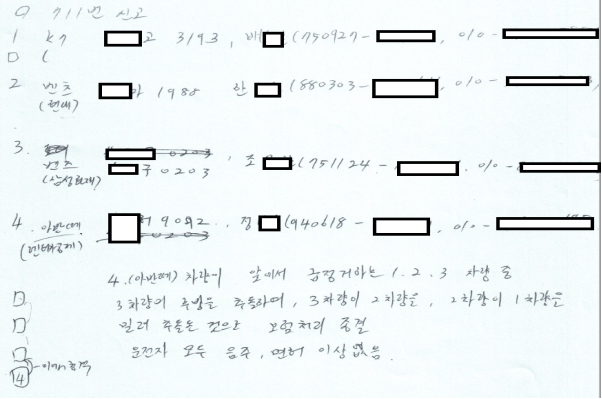 ○ 711번 신고
1 K7 고 3193, 배 (750927- , 010-
2 벤츠 1988 한 (880303- , 010-
(현대)
3. 0203, 조 (751124- , 010-
벤츠 구 0203
(삼성화재)
4. 아반떼 9092, 정 (940618- , 010-
(렌터카공제) 0203
4.(아반떼) 차량이 앞에서 급정거하는 1.2.3 차량 중
3차량의 후방을 추돌하여, 3차량이 2차량을, 2차량이 1차량을
밀려 추돌한 것으로 보험처리 종결
운전자 모두 음주, 면허 이상 없음.
4